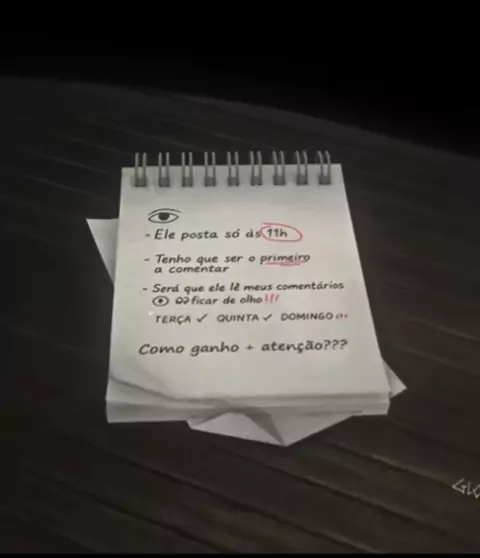 - Ele posta só às 11h
- Tenho que ser o primeiro
a comentar
- Será que ele lê meus comentários
ficar de olho!!!
TERÇA ✓ QUINTA ✓ DOMINGO
Como ganho + atenção???